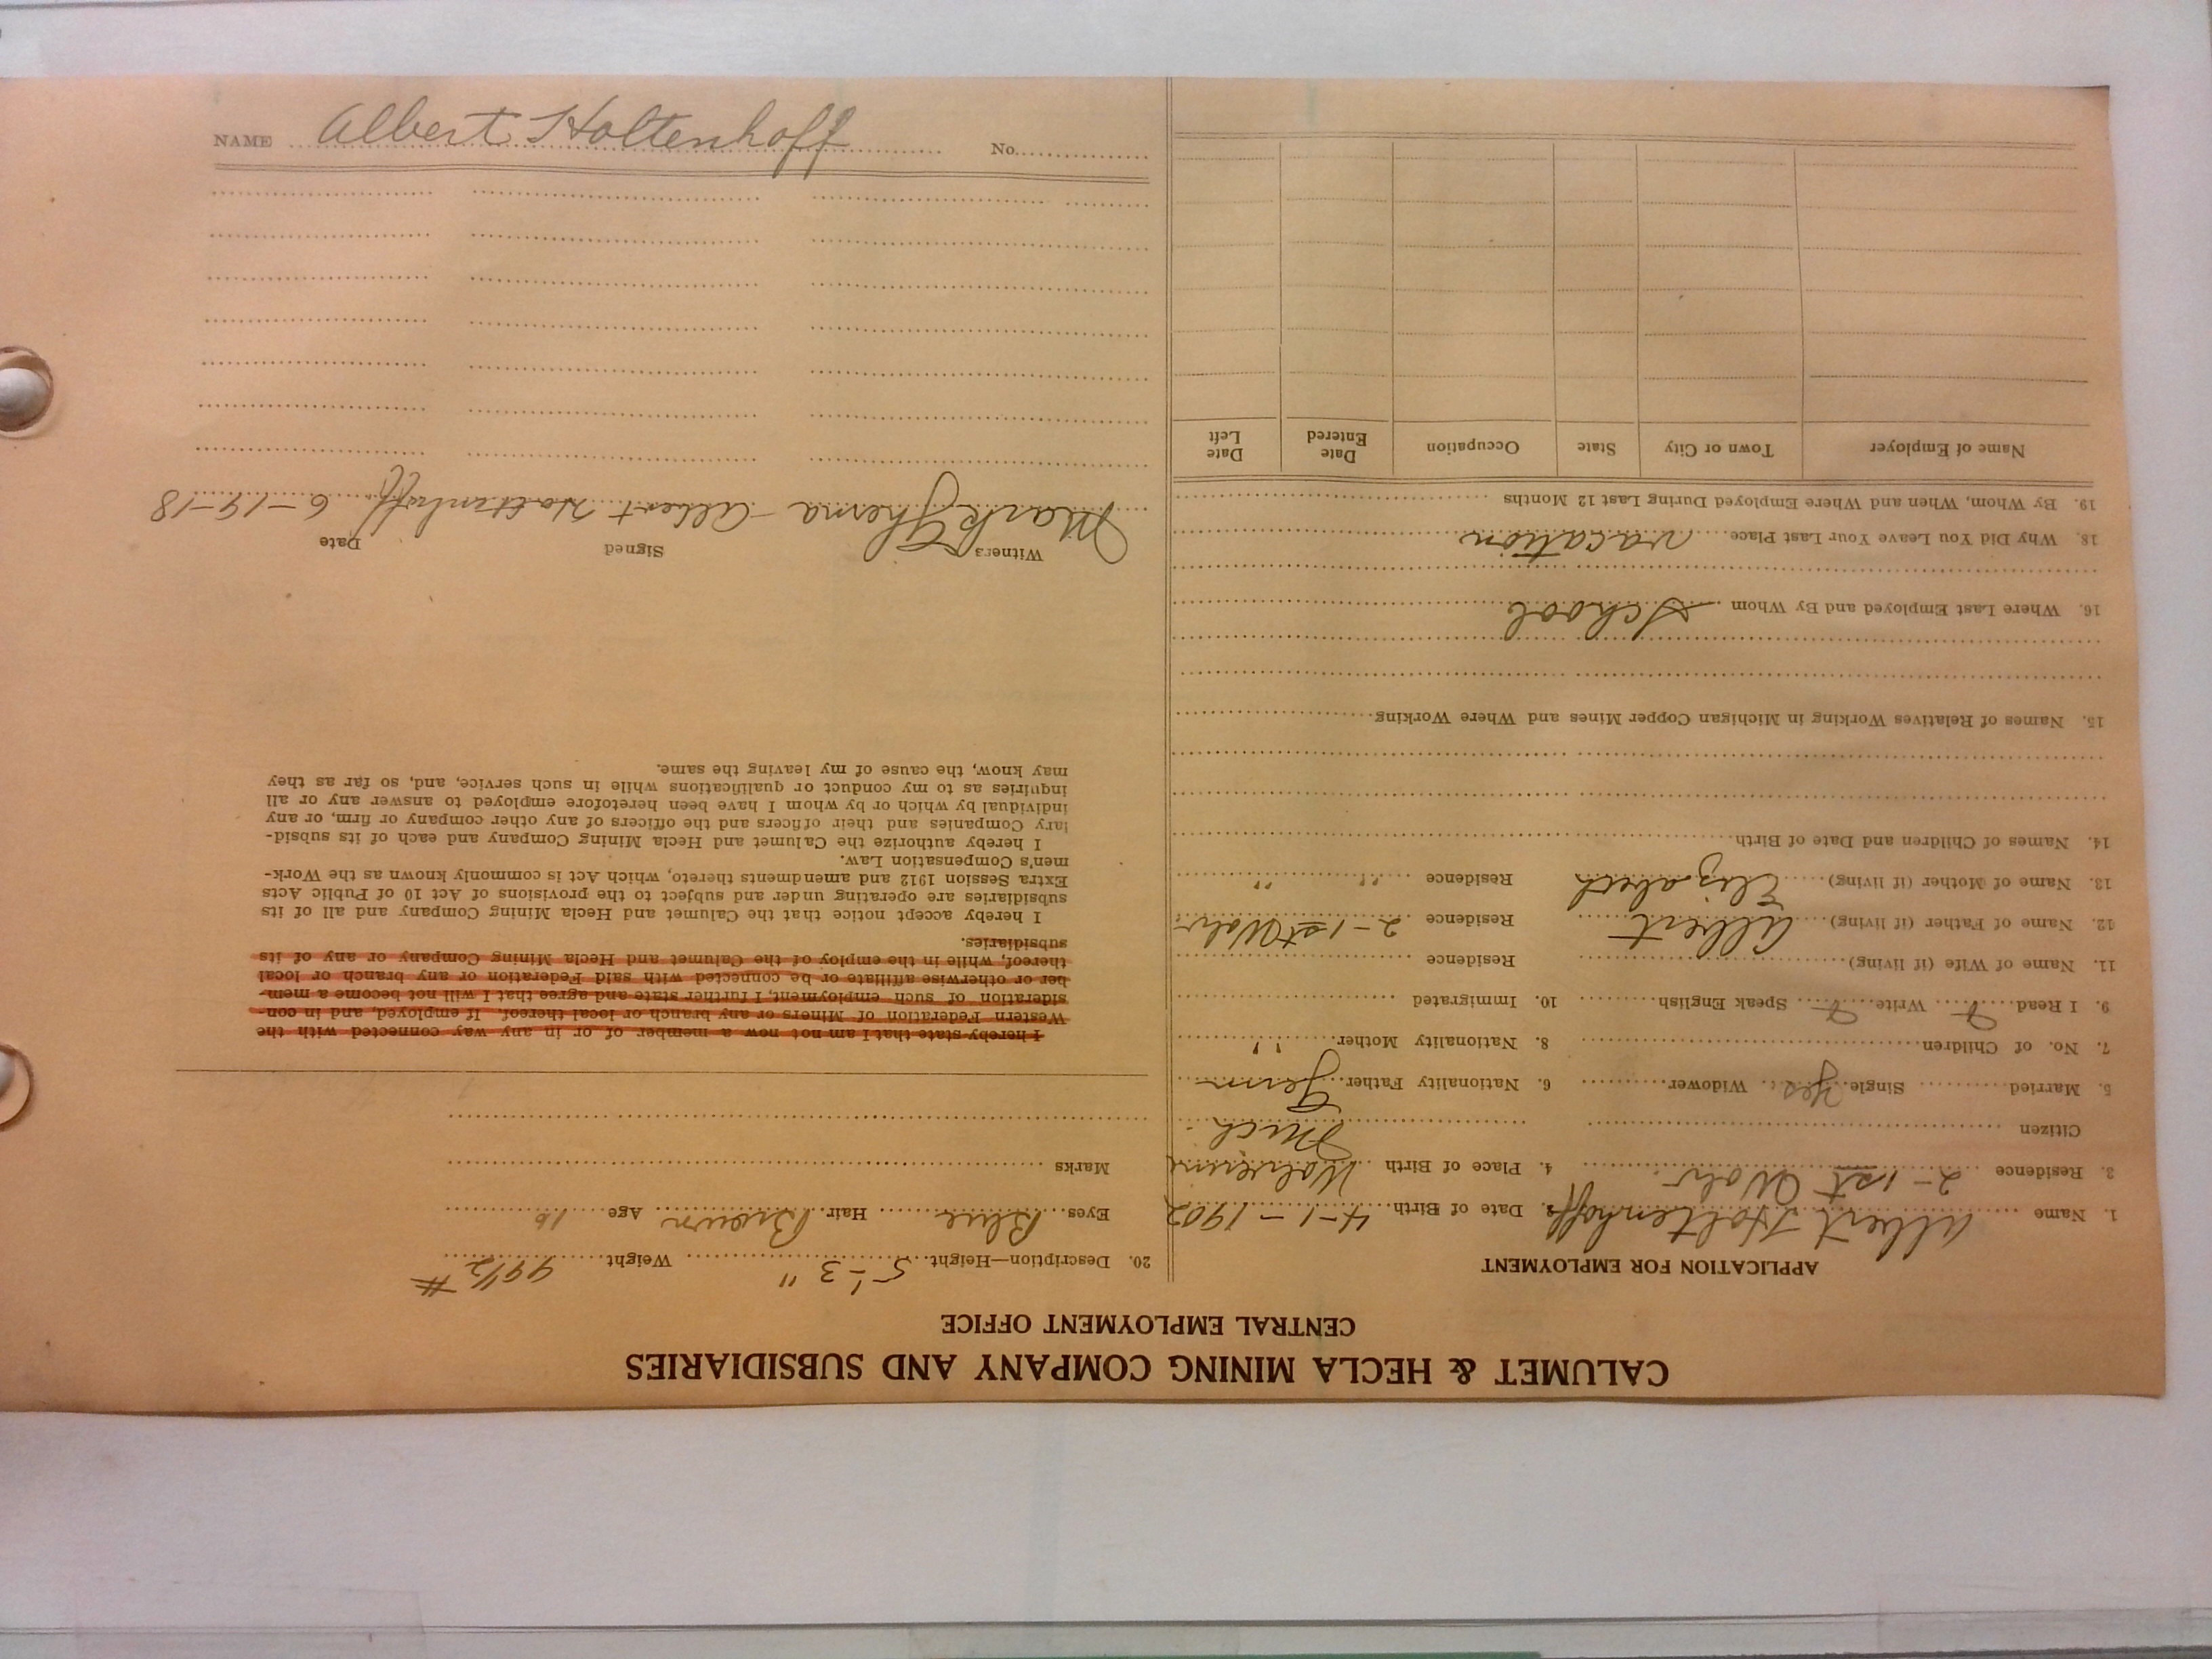 CALUMET & HECLA MINING COMPANY AND SUBSIDIARIES
CENTRAL EMPLOYMENT OFFICE
APPLICATION FOR EMPLOYMENT
1. Name Albert Holtenhoff 2. Date of Birth 4-1-1902
3. Residence 2-1st Wolv 4. Place of Birth Wolverine
Mich.
Citizen
5. Married Single Yes Widower 6. Nationality Father Germ
7. No. of Children 8. Nationality Mother " "
9. I Read Write Speak English 10. Immigrated
11. Name of Wife (if living) Residence
12. Name of Father (if living) Albert Residence 2-1st Wolv
13. Name of Mother (if living) Elizabeth Residence " "
14. Names of Children and Date of Birth
15. Names of Relatives Working in Michigan Copper Mines and Where Working
16. Where Last Employed and By Whom School
18. Why Did You Leave Your Last Place vacation
19. By Whom, When and Where Employed During Last 12 Months
Name of Employer Town or City State Occupation Date Entered Date Left
20. Description—Height 5'-3" Weight 99½ #
Eyes Blue Hair Brown Age 16
Marks
I hereby state that I am not now a member of or in any way connected with the
Western Federation of Miners or any branch or local thereof. If employed, and in con-
sideration of such employment, I further state and agree that I will not become a mem-
ber or otherwise affiliate or be connected with said Federation or any branch or local
thereof, while in the employ of the Calumet and Hecla Mining Company or any of its
subsidiaries.
I hereby accept notice that the Calumet and Hecla Mining Company and all of its
subsidiaries are operating under and subject to the provisions of Act 10 of Public Acts
Extra Session 1912 and amendments thereto, which Act is commonly known as the Work-
men's Compensation Law.
I hereby authorize the Calumet and Hecla Mining Company and each of its subsid-
iary Companies and their officers and the officers of any other company or firm, or any
individual by which or by whom I have been heretofore employed to answer any or all
inquiries as to my conduct or qualifications while in such service, and, so far as they
may know, the cause of my leaving the same.
Witness Signed Date
Mark Albert Holtenhoff 6-19-18
NAME Albert Holtenhoff No.